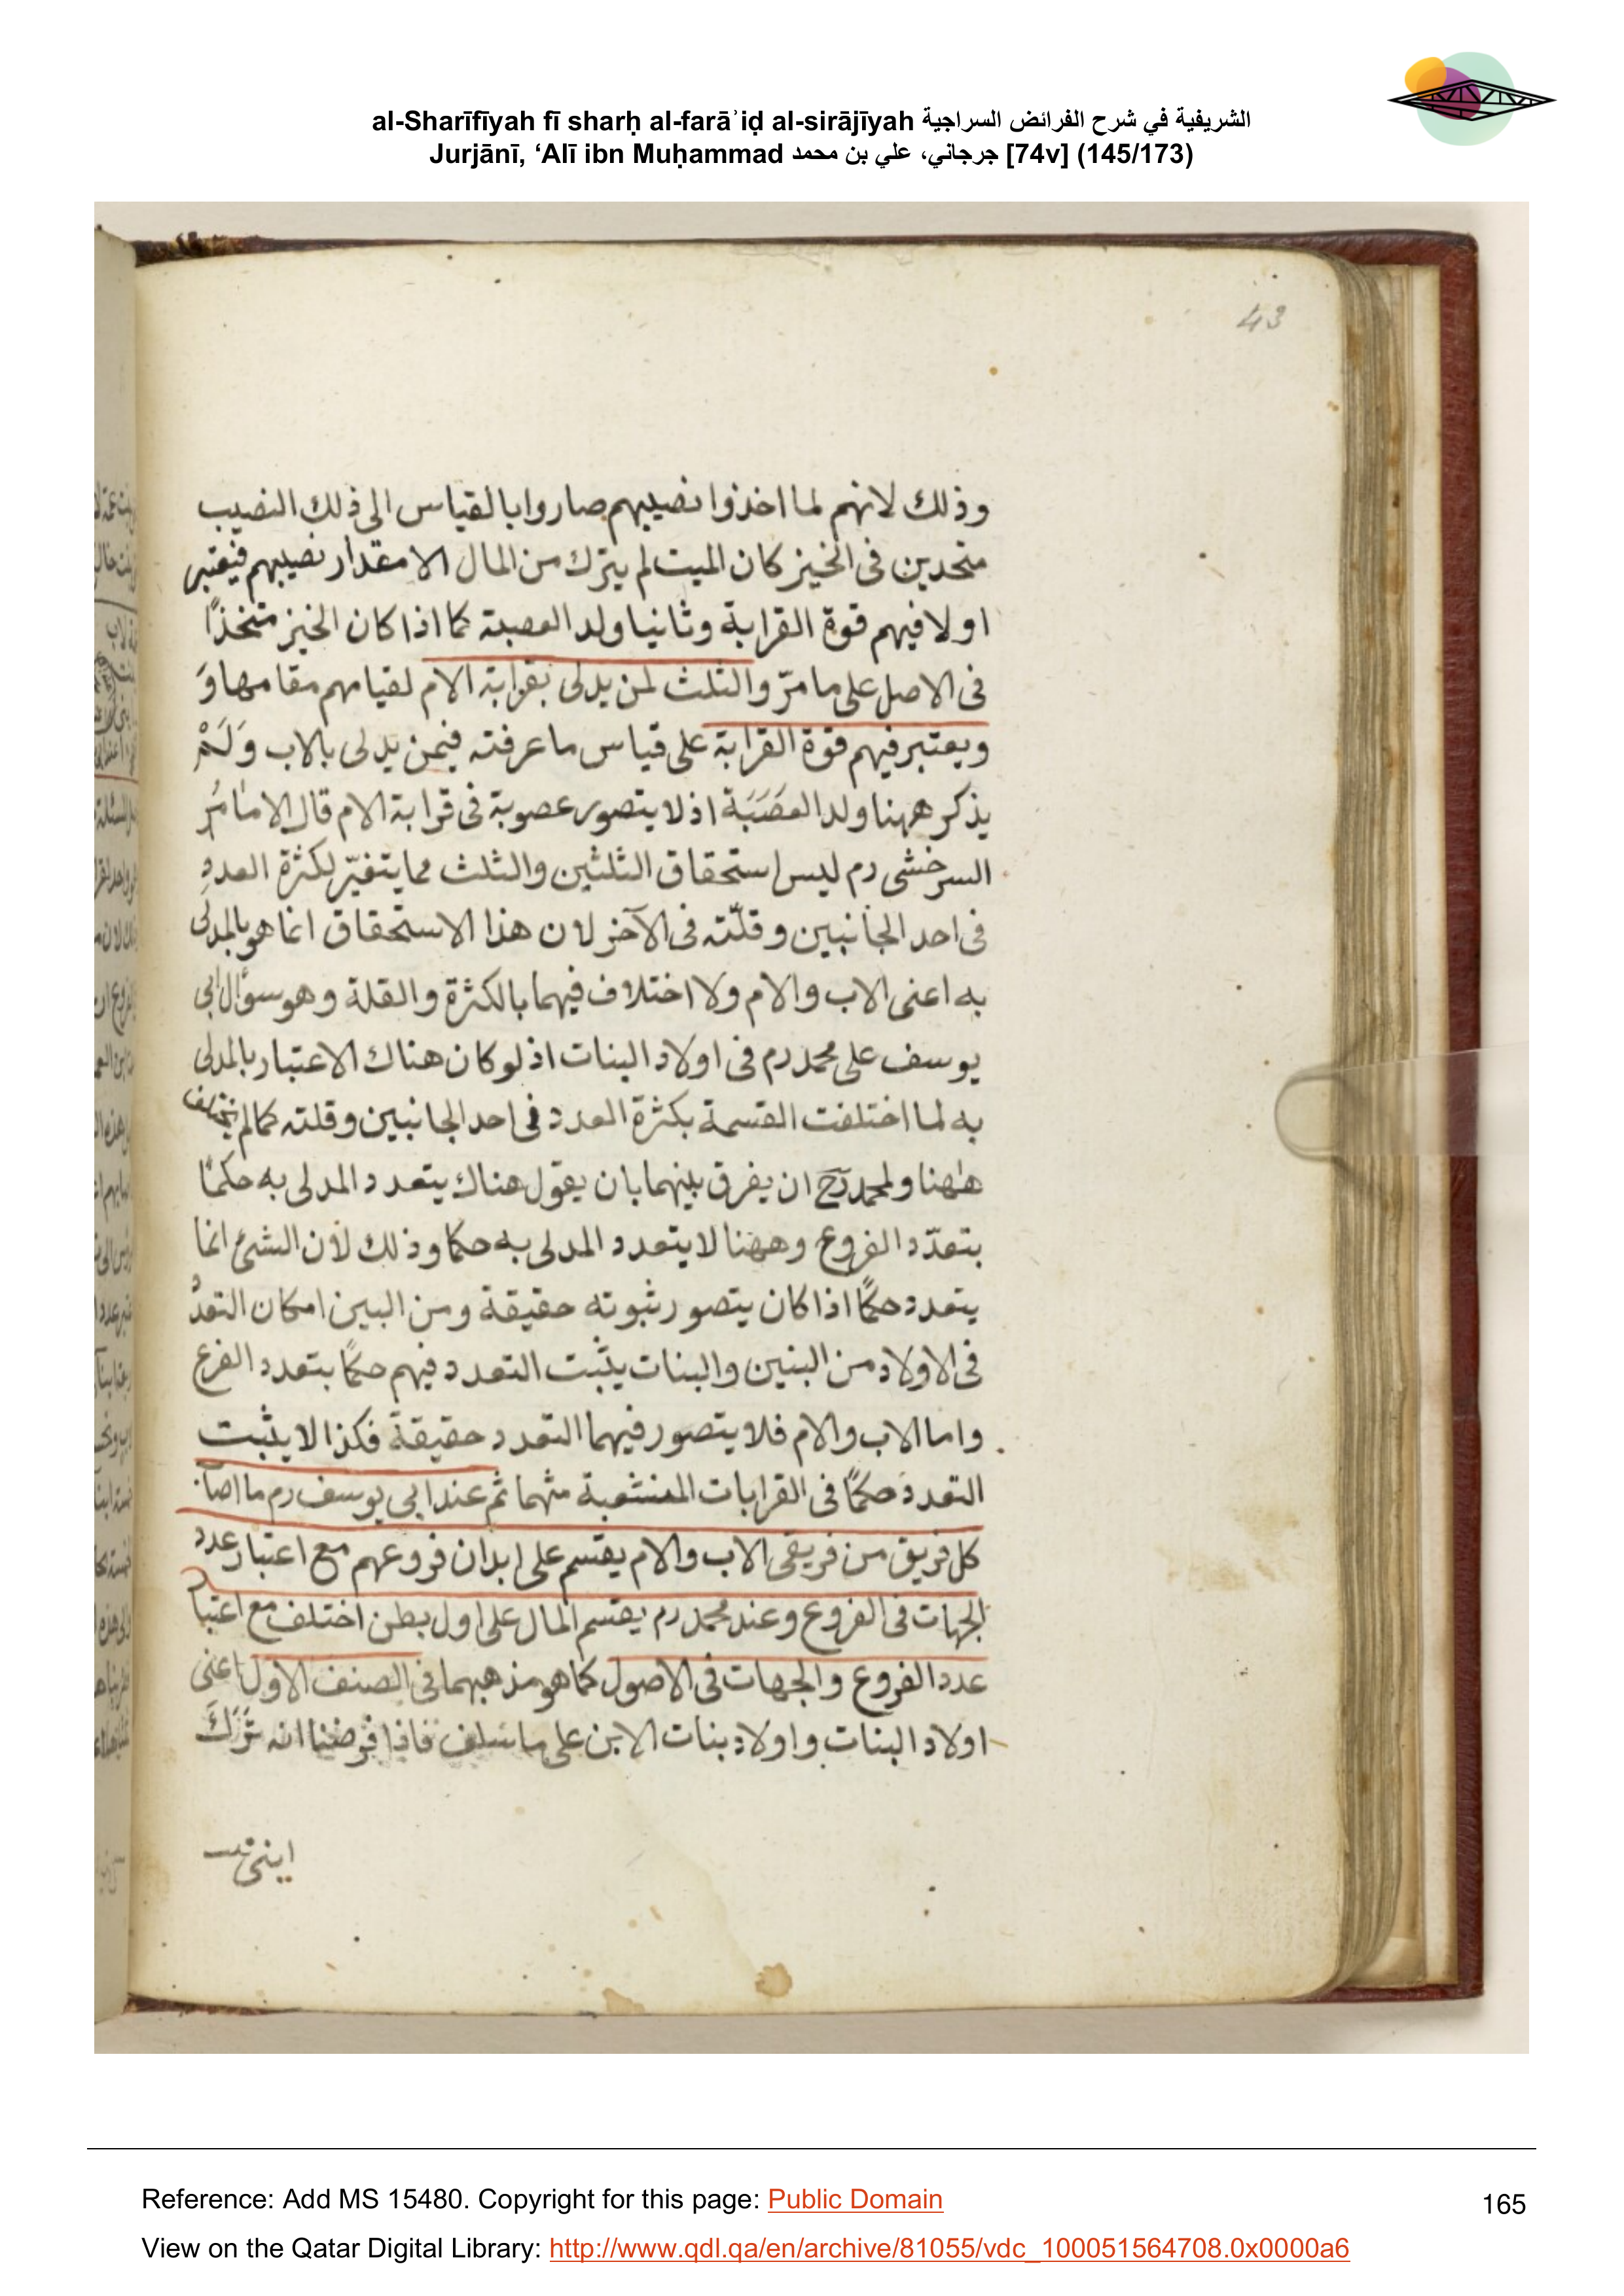 al-Sharīfīyah fī sharḥ al-farāʾiḍ al-sirājīyah الشريفية في شرح الفرائض السراجية
Jurjānī, ‘Alī ibn Muḥammad جرجاني، علي بن محمد [74v] (145/173)
43
وذلك لانهم لما اخذوا نصيبهم صاروا بالقياس الى ذلك النصيب
متحدين فى الخيز كان الميت لم يترك من المال الا مقدار نصيبهم فيعتبر
اولا فيهم قوة القرابة وثانيا ولد العصبة كما اذا كان الخيز متخذًا
فى الاصل على ما مرّ والثلث لمن يدلى بقرابة الام لقيامهم مقامها وَ
ويعتبر فيهم قوة القرابة على قياس ما عرفته فيمن يدلى بالاب وَلَمْ
يذكر ههنا ولد العصَبَة اذ لا يتصور عصوبة فى قرابة الام قال الامامُ
السرخشى رم ليس استحقاق الثلثين والثلث مما يتغيّر لكثرة العددِ
فى احد الجانبين وقلّته فى الآخر لان هذا الاستحقاق انما هو بالمدلى
به اعنى الاب والام ولا اختلاف فيهما بالكثرة والقلة وهو سؤال ابى
يوسف على محمد رم فى اولاد البنات اذ لو كان هناك الاعتبار بالمدلى
به لما اختلفت القسمة بكثرة العدد فى احد الجانبين وقلته كما لم يختلف
هٰهنا ولمحمد رح ان يفرق بينهما بان يقول هناك يتعدد المدلى به حكمًا
بتعدّد الفروع وههنا لا يتعدد المدلى به حكما وذلك لأن الشئ انما
يتعدد حكمًا اذا كان يتصور ثبوته حقيقة ومن البين امكان التعدّد
فى الاولاد من البنين والبنات يثبت التعدد فيهم حكمًا بتعدد الفرع
واما الاب والام فلا يتصور فيهما التعدد حقيقة فكذا لا يثبت
التعدد حكمًا فى القرابات المنشعبة منهما ثم عند ابى يوسف رم ما اصاب
كل فريق من فريقى الاب والام يقسم على ابدان فروعهم مع اعتبار عدد
الجهات فى الفروع وعند محمد رم يقسم المال على اول بطن اختلف مع اعتبار
عدد الفروع والجهات فى الاصول كما هو مذهبهما فى الصنف الاول اعنى
اولاد البنات واولاد بنات الابن على ما سلف فاذا فرضنا انه تَرَكَ
ابنتى
Reference: Add MS 15480. Copyright for this page: Public Domain
165
View on the Qatar Digital Library: http://www.qdl.qa/en/archive/81055/vdc_100051564708.0x0000a6